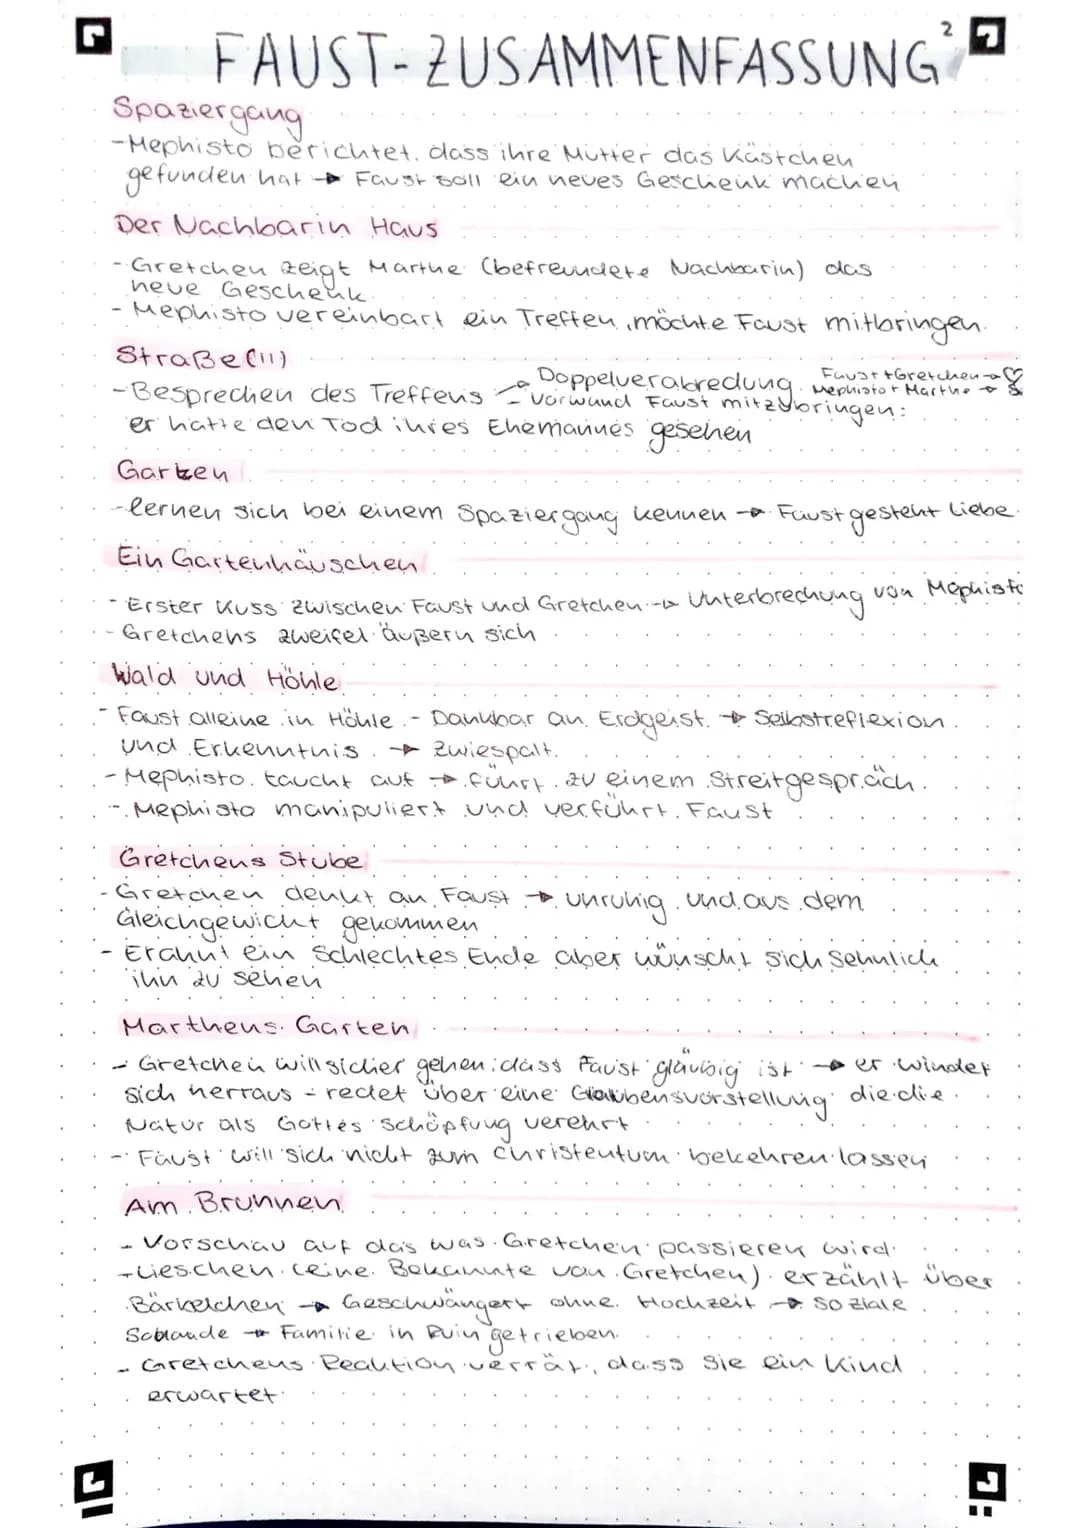 FAUST-ZUSAMMENFASSUNG²
Spaziergang
-Mephisto berichtet, dass ihre Mutter das Kästchen
gefunden hat → Faust soll ein neues Geschenk machen
Der Nachbarin Haus
- Gretchen zeigt Marthe (befreundete Nachbarin) das
neue Geschenk
- Mephisto vereinbart ein Treffen, möchte Faust mitbringen.
Straße (II)
-Besprechen des Treffens → Doppelverabredung. Faust+Gretchen→♡
Mephisto+Marthe →
- Vorwand Faust mitzubringen:
er hatte den Tod ihres Ehemannes gesehen
Garten
-lernen sich bei einem Spaziergang kennen → Faust gesteht Liebe.
Ein Gartenhäuschen
- Erster Kuss zwischen Faust und Gretchen → Unterbrechung von Mephisto
- Gretchens zweifel äußern sich
Wald und Höhle
- Faust alleine in Höhle - Dankbar an Erdgeist. → Selbstreflexion
und Erkenntnis. → Zwiespalt.
- Mephisto taucht auf → führt zu einem Streitgespräch.
- Mephisto manipuliert und verführt Faust
Gretchens Stube
- Gretchen denkt an Faust → unruhig und aus dem
Gleichgewicht gekommen
- Erahnt ein Schlechtes Ende aber wünscht sich sehnlich
ihn zu sehen
Marthens Garten
- Gretchen will sicher gehen, dass Faust gläubig ist → er windet
sich herraus - redet über eine Glaubensvorstellung die die
Natur als Gottes Schöpfung verehrt
- Faust will sich nicht zum Christentum bekehren lassen
Am Brunnen
- Vorschau auf das was Gretchen passieren wird
- Lieschen (eine Bekannte von Gretchen) erzählt über
Bärbelchen → Geschwängert ohne Hochzeit → soziale
Schande → Familie in Ruin getrieben.
- Gretchens Reaktion verrät, dass sie ein Kind
erwartet